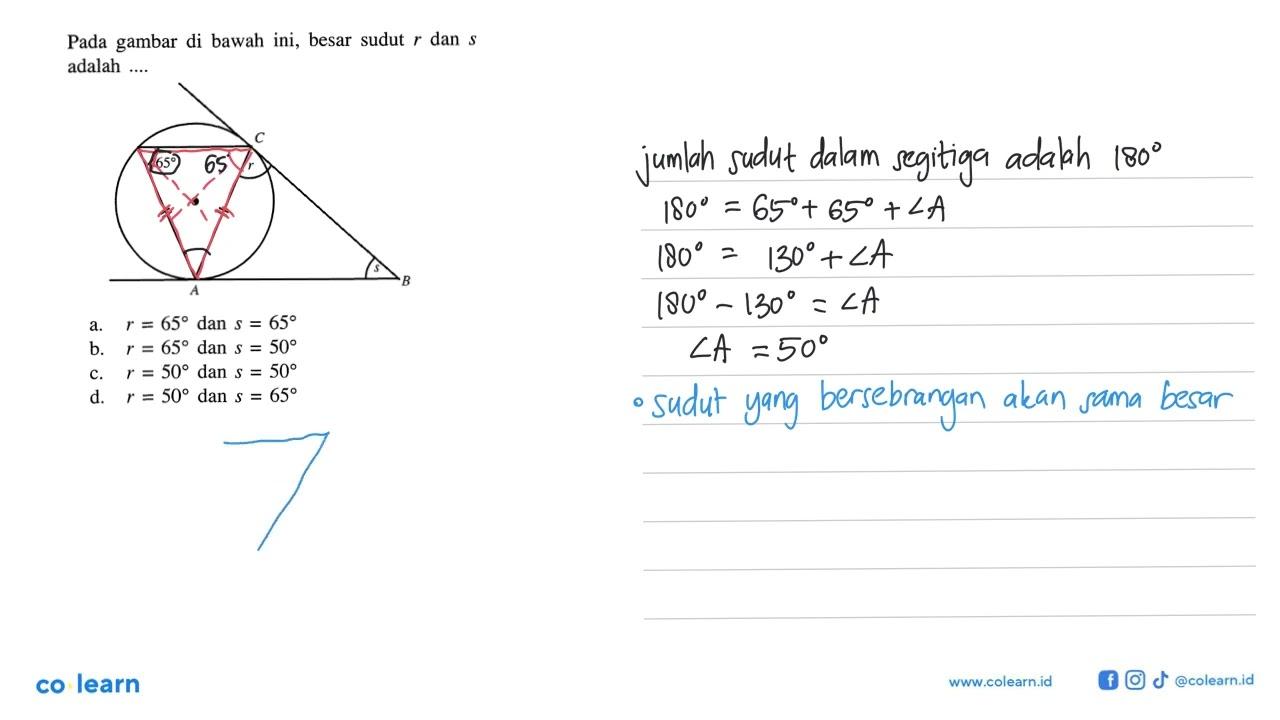 Pada gambar di bawah ini, besar sudut r dan s
adalah ....
C
65°
65
r
s
A
B
a. r = 65° dan s = 65°
b. r = 65° dan s = 50°
c. r = 50° dan s = 50°
d. r = 50° dan s = 65°
jumlah sudut dalam segitiga adalah 180°
180° = 65° + 65° + ∠A
180° = 130° + ∠A
180° - 130° = ∠A
∠A = 50°
• sudut yang bersebrangan akan sama besar
co learn
www.colearn.id
@colearn.id